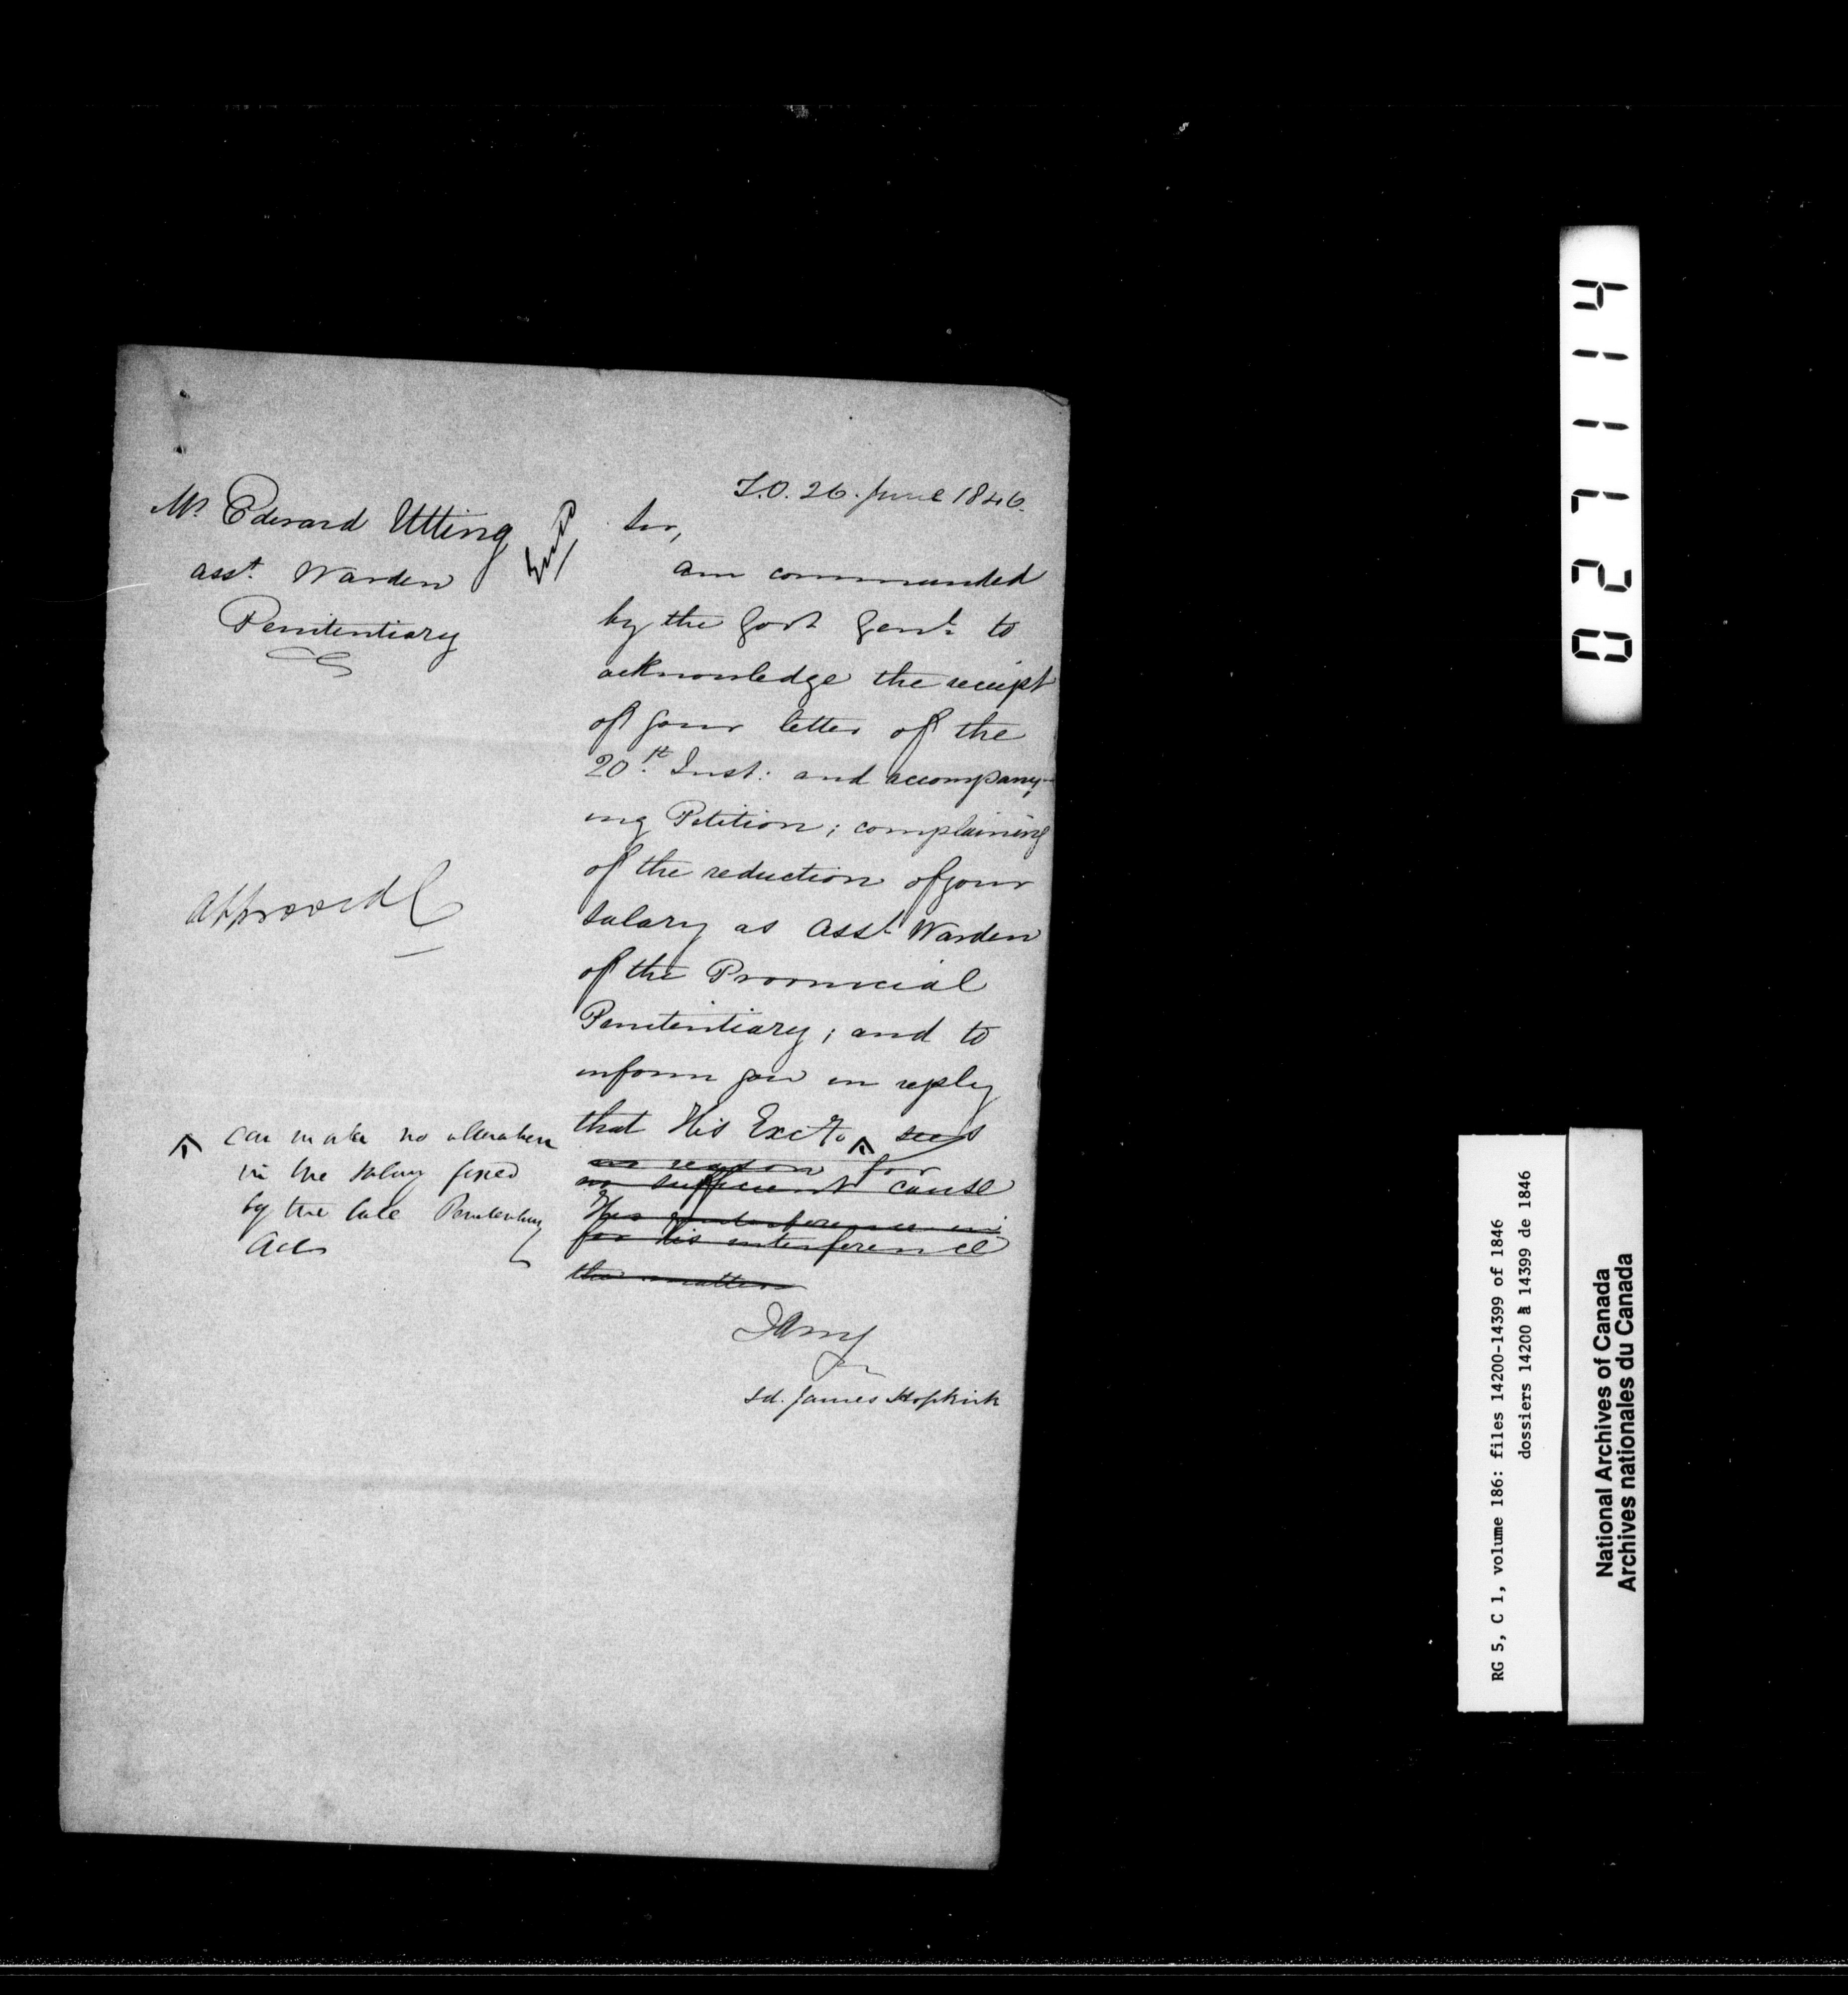 S.O. 26. June 1846.
Mr. Edward Utting
asst. Warden
Penitentiary
Sir,
am commanded
by the Govr. Genl. to
acknowledge the receipt
of your letter of the
20th. Inst: and accompany-
ing Petition; complaining
of the reduction of your
salary as asst. Warden
of the Provincial
Penitentiary; and to
inform you in reply
that His Excy. ^ sees
no reason for
no sufficient cause
His interference in
for his interference
the matter
Approved
^ can make no alteration
in the salary fixed
by the late Penitentiary
Act
sd. James Hopkirk
027114
RG 5, C 1, volume 186: files 14200-14399 of 1846
dossiers 14200 à 14399 de 1846
National Archives of Canada
Archives nationales du Canada